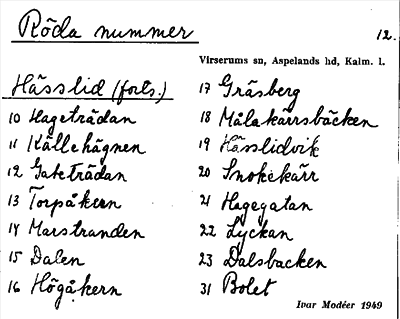 Röda nummer
12.
Virserums sn, Aspelands hd, Kalm. l.
Hässlid (forts.)
10 Hageträdan
11 Källehägnen
12 Gateträdan
13 Torpåkern
14 Marstranden
15 Dalen
16 Högåkern
17 Gräsberg
18 Målakärrsbäcken
19 Hässlidvik
20 Snokekärr
21 Hagegatan
22 Lyckan
23 Dalsbacken
31 Bolet
Ivar Modéer 1949